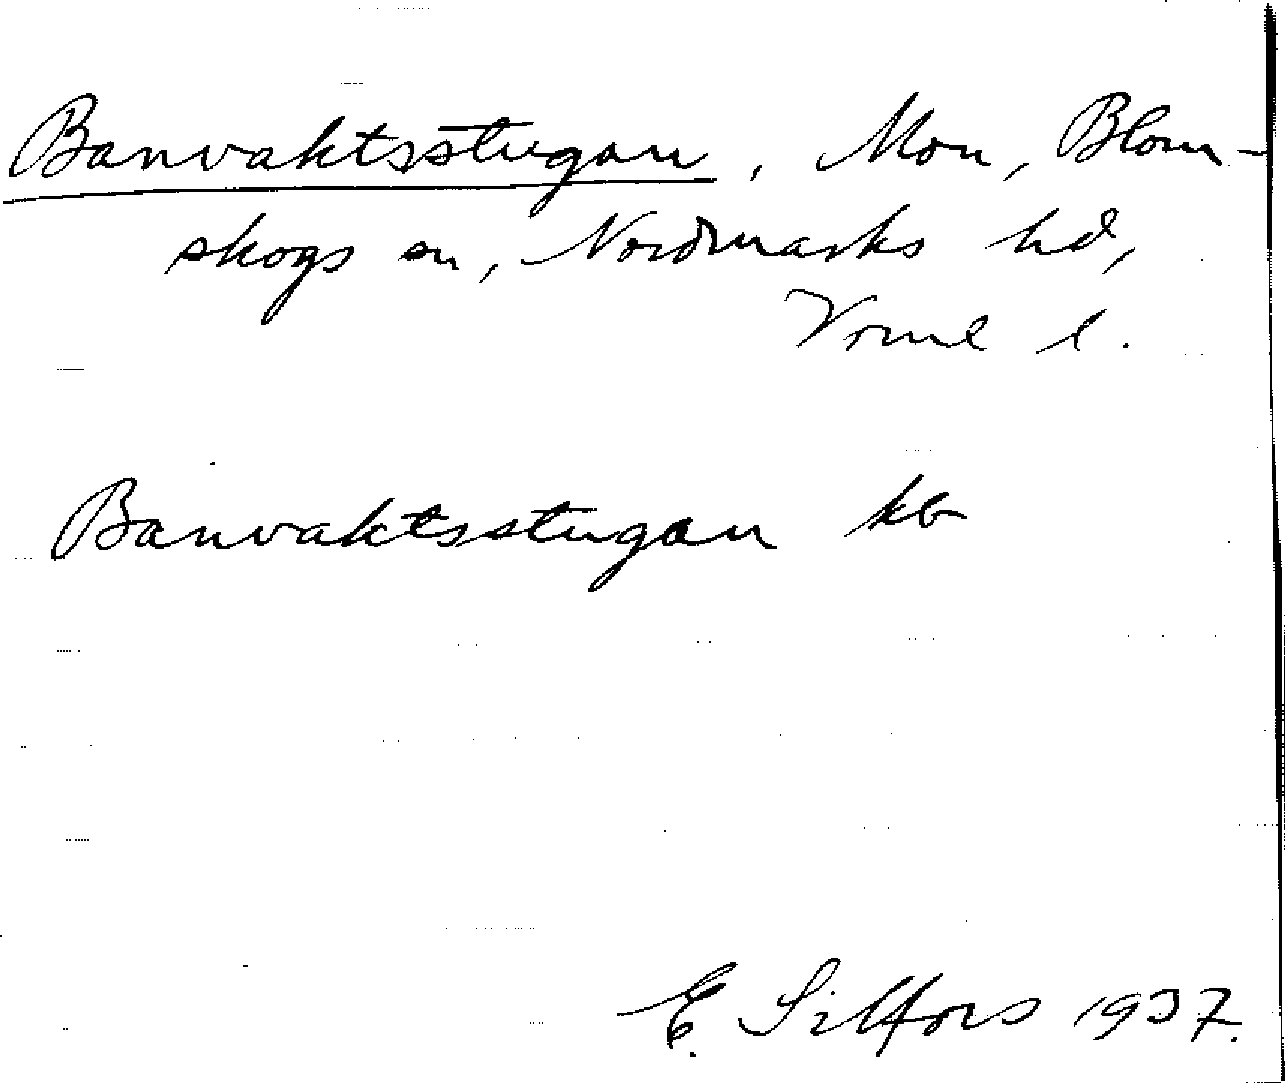 Banvaktsstugan, Mon, Blom-
skogs sn, Nordmarks hd,
Vrml l.
Banvaktsstugan kb
E. Silfors 1937.